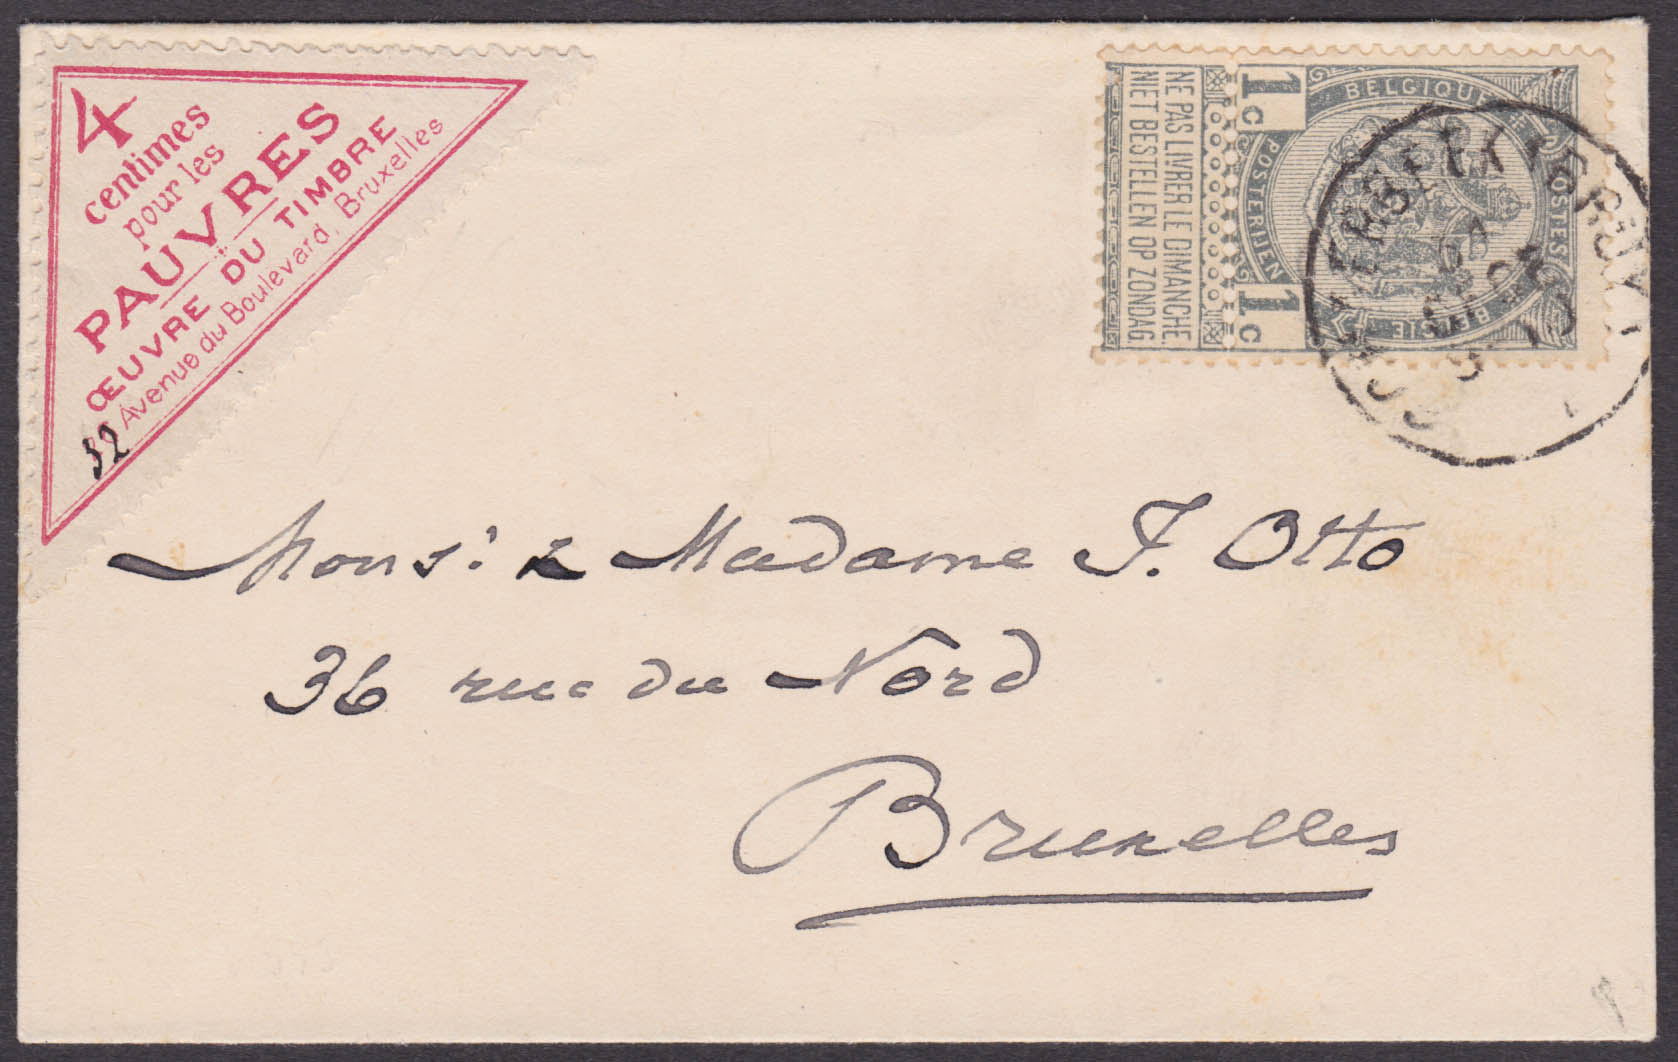 4
centimes
pour les
PAUVRES
ŒUVRE DU TIMBRE
32 Avenue du Boulevard, Bruxelles
NE PAS LIVRER LE DIMANCHE
NIET BESTELLEN OP ZONDAG
1c 1c
BELGIQUE POSTES
POSTERIJEN BELGIE
Monsr & Madame F. Otto
36 rue du Nord
Bruxelles